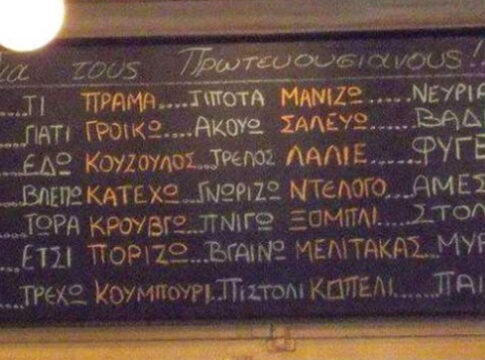 για τους Πρωτευουσιανους!!
....ΤΙ ΠΡΑΜΑ....ΤΙΠΟΤΑ ΜΑΝΙΖΩ......ΝΕΥΡΙΑ
....ΓΙΑΤΙ ΓΡΟΙΚΩ...ΑΚΟΥΩ ΣΑΛΕΥΩ......ΒΑΔΙ
....ΕΔΩ ΚΟΥΖΟΥΛΟΣ..ΤΡΕΛΟΣ ΛΑΛΙΕ......ΦΥΓΕ
...ΒΛΕΠΩ ΚΑΤΕΧΩ..ΓΝΩΡΙΖΩ ΝΤΕΛΟΓΟ..ΑΜΕΣ
...ΤΩΡΑ ΚΡΟΥΒΓΩ..ΠΝΙΓΩ ΞΟΜΠΛΙ....ΣΤΟΛ
...ΕΤΣΙ ΠΟΡΙΖΩ..ΒΓΑΙΝΩ ΜΕΛΙΤΑΚΑΣ..ΜΥΡ
...ΤΡΕΧΩ ΚΟΥΜΠΟΥΡΙ..ΠΙΣΤΟΛΙ ΚΟΠΕΛΙ......ΠΑΙ